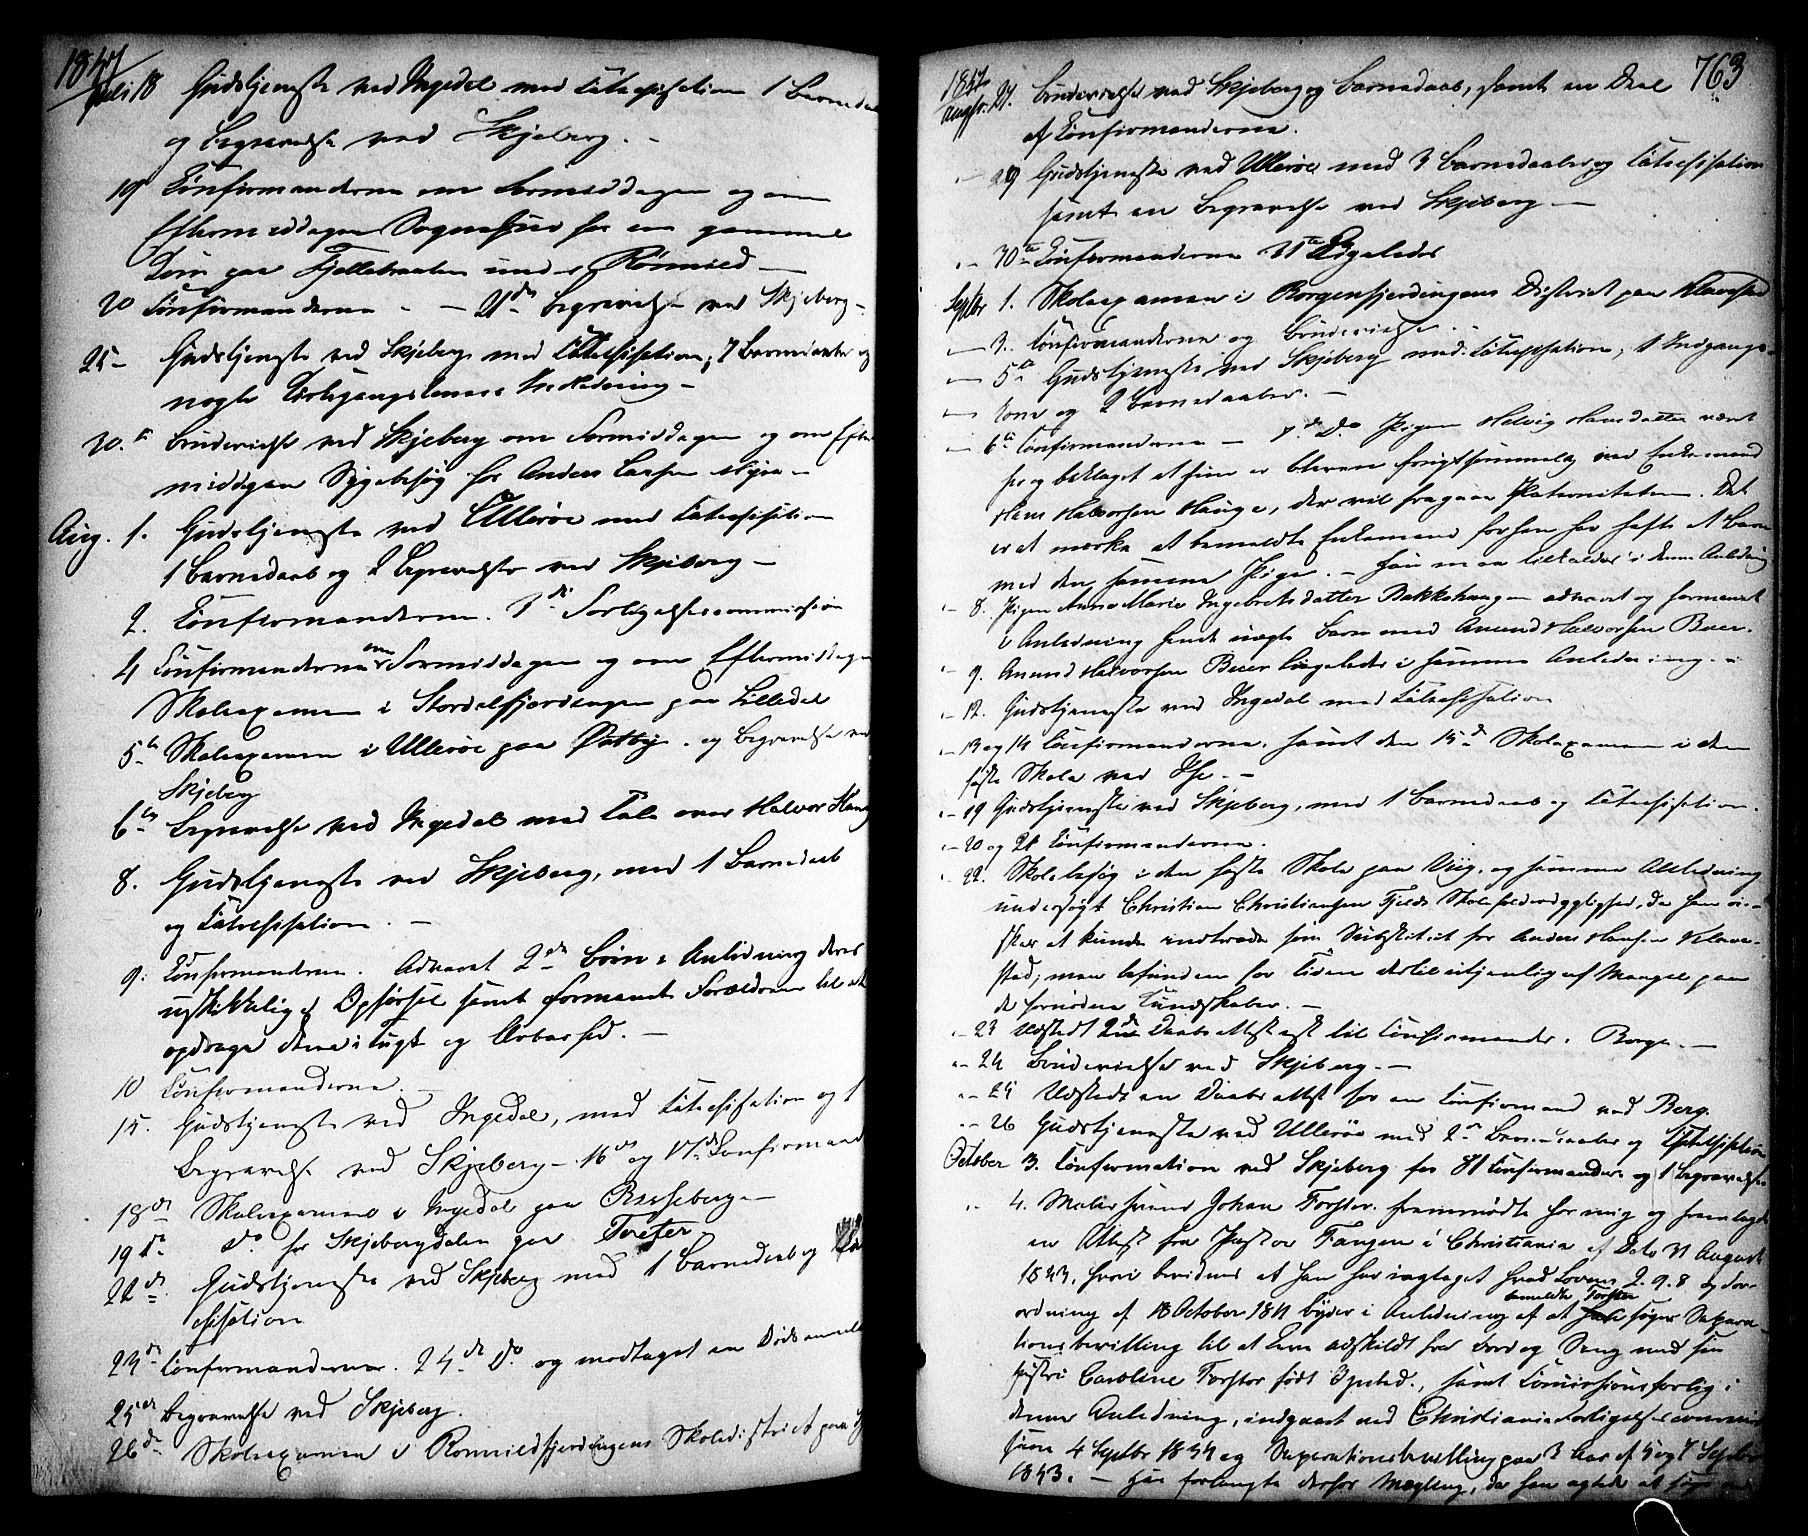 1847
Juli 18 Gudstjeneste ved Ingedal med Catechisation 1 Barnedaab
og Begravelse ved Skjeberg. –
19 Confirmanderne om Formiddagen og om
Eftermiddagen Sognebud for en gammel
Kone paa Fjellebraaten under Rønneld –
20 Confirmanderne – – 21de Begravelse ved Skjeberg –
25 – Gudstjeneste ved Skjeberg med Catechisation, 7 Barnedaabe og
nogle Kirkegangskoners Indledning –
30.te Brudevielse ved Skjeberg om Formiddagen og om Efter
middagen Sygebesøg for Anders Larsen Myra –
Aug. 1. Gudstjeneste ved Ullerøe med Catechisation
1 Barnedaab og 2 Begravelser ved Skjeberg –
2. Confirmanderne. 3die Forligelsescommission
4 Confirmanderne om Formiddagen og om Eftermiddagen
Skoleexamen i Stordalfjerdingen paa Lilledal
5te Skoleexamen i Ullerøe paa Ødeby. og Begravelse ved
Skjeberg
6te Begravelse ved Ingedal med Tale over Halvor
8. Gudstjeneste ved Skjeberg, med 1 Barnedaab
og Catechisation. –
9. Confirmanderne. Advaret 2de Børn i Anledning deres
uskikkelige Opførsel samt formanet Forældrene til at
opdrage dem i Tugt og Ærbarhed. –
10 Confirmanderne. –
15. Gudstjeneste ved Ingedal, med Catechisation og 1
Begravelse ved Skjeberg – 16de og 17de Confirmand
18de Skoleexamen i Ingedal paa Bisseberg –
19de Do for Skjebergdalen paa
22de Gudstjeneste ved Skjeberg med 1 Barnedaab og
chisation
23de Confirmanderne. 24de Do og modtaget en
25de Begravelse ved Skjeberg.
26de Skoleexamen i Romnildfjerdingens Skoledistrict paa
763
1847
August. 27. Brudevielse ved Skjeberg og Barnedaab, samt en Deel
af Confirmanderne.
– 29 Gudstjeneste ved Ullerøe med 3 Barnedaabe og Catechisation
samt en Begravelse ved Skjeberg –
– 30te Confirmanderne 31te Ligeledes
Septbr 1. Skoleexamen i Borgenfjerdingens District paa Klavestad
– 3. Confirmanderne og Brudevielse. –
– 5te Gudstjeneste ved Skjeberg med Catechisation, 1 Indgangs-
– kone og 2 Barnedaaber. –
– 6te Confirmanderne – 7de Do Pigen Helvig Hansdatter været
her og beklaget at hun er bleven frugtsommelig ved Enkemand
Hans Halvorsen Hauge, der vil fragaae Paterniteten. Det
er at mærke at bemeldte Enkemand forhen har havt et Barn
med den samme Pige. – Han maa tilkaldes i denne Anledning
– 8. Pigen Anne Marie Ingebretsdatter Bakkehaugen advaret og formanet
i Anledning hendes uægte Barn med Amund Halvorsen Buer.
– 9. Amund Halvorsen Buer ligeledes i samme Anledning. –
– 12. Gudstjeneste ved Ingedal med Catechisation
– 13 og 14 Confirmanderne, samt den 15de Skoleexamen i den
faste Skole ved Ise. –
– 19 Gudstjeneste ved Skjeberg, med 1 Barnedaab og Catechisation.
– 20 og 21 Confirmanderne.
– 22. Skolebesøg i den faste Skole paa Viig. og samme Anledning
undersøgt Christian Christiansen Fjelds Skoleholderdygtighed, da han øn-
sker at kunde indtræde som Substitut for Anders Hansen Klave-
stad; man befunden for Tiden dertil utjenlig af Mangel paa
de fornødne Kundskaber. –
– 23 Udstedt 2de Daabsattester til Confirmander i Borge. –
– 24 Brudevielse ved Skjeberg. –
– 25 Udstedt en Daabsattest for en Confirmand ved Berg.
– 26 Gudstjeneste ved Ullerøe med 2de Barnedaaber og Catechisation
October 3. Confirmation ved Skjeberg for 81 Confirmander og 1 Begravelse
– 4. Malersvend Johan Forster fremmødte for mig og fremlagde
en Attest fra Pastor Fangen i Christiania af Dato 31 August
1843, hvori bevidnes at han har iagttaget hvad Lovens 2.9.8 og For-
ordning af 18 October 1811 byder i Anledning af at bemeldte Forster søger Separa-
tionsbevilling til at leve adskildt fra Bord og Seng med sin
Hustru Caroline Forster født Opsted., samt Commissionsforlig i
denne Anledning, indgaaet ved Christiania Forligelsescommis
sion 4 Septbr 1844 og Separationsbevilling paa 3 Aar af 5 og 7 Septbr
1843. – Han forlangte derfor Mægling, da han agtede at søge